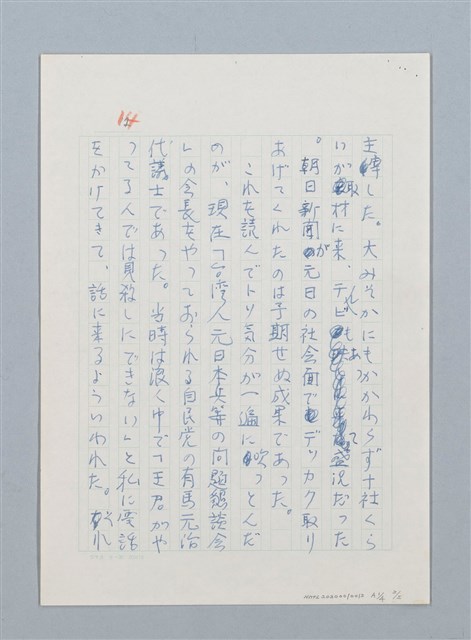 14
主催した。大みそかにもかかわらず十社くら
いが取材に来、テレビもあって盛況だった
。朝日新聞が元日の社会面でデッカク取り
あげてくれたのは予期せぬ成果であった。
これを読んでトソ気分が一遍に吹っとんだ
のが、現在「台湾人元日本兵等の問題懇談会
」の会長をやっておられる自民党の有馬元治
代議士であった。当時は浪人中で「王君がや
ってる人では見殺しにできない」と私に電話
をかけてきて、話に来るよういわれた。それ